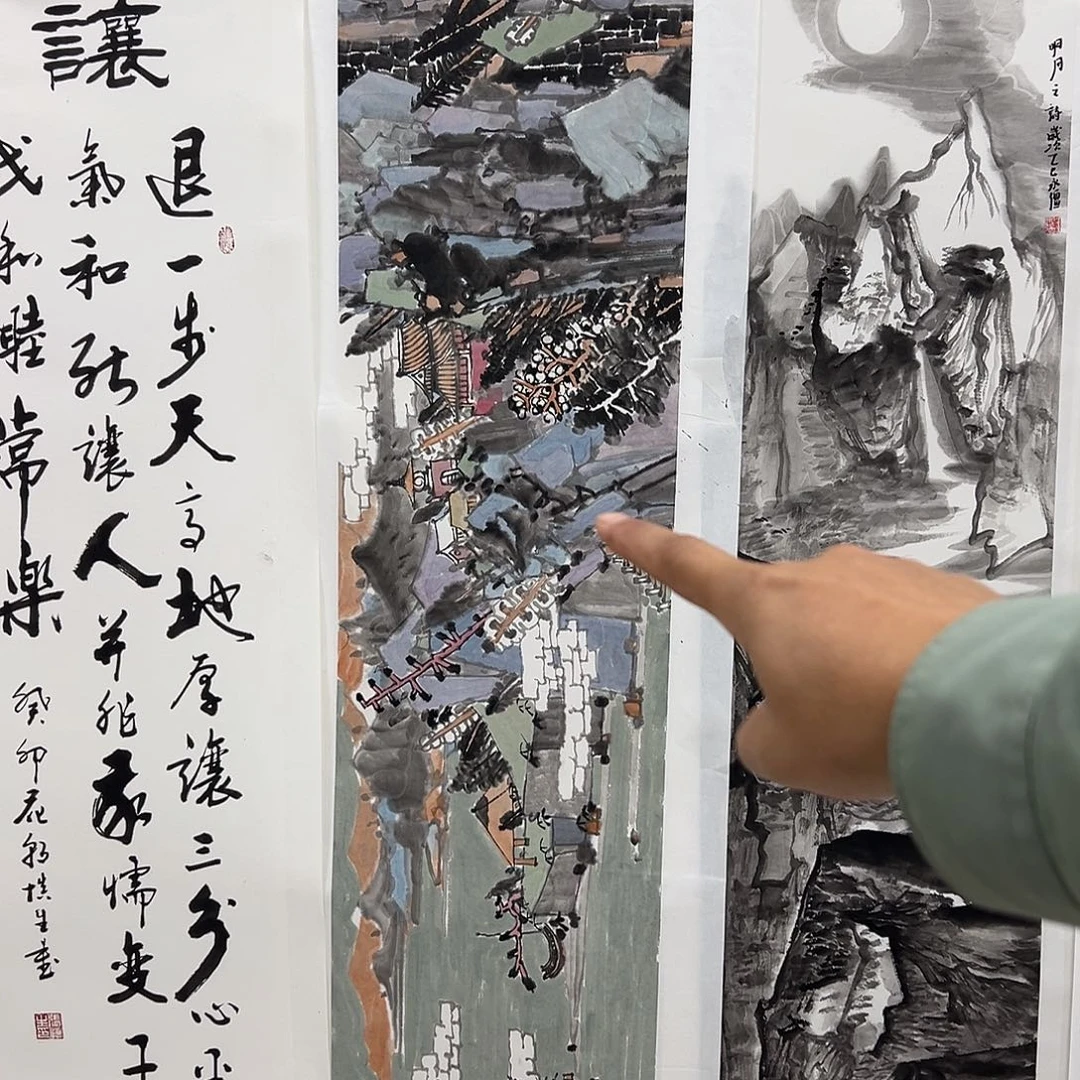 讓
退一步天高地厚讓三分心平
氣和能讓人并非我懦变干
戈和睦常樂
癸卯花朝生書
明月之詩歲次乙巳僧